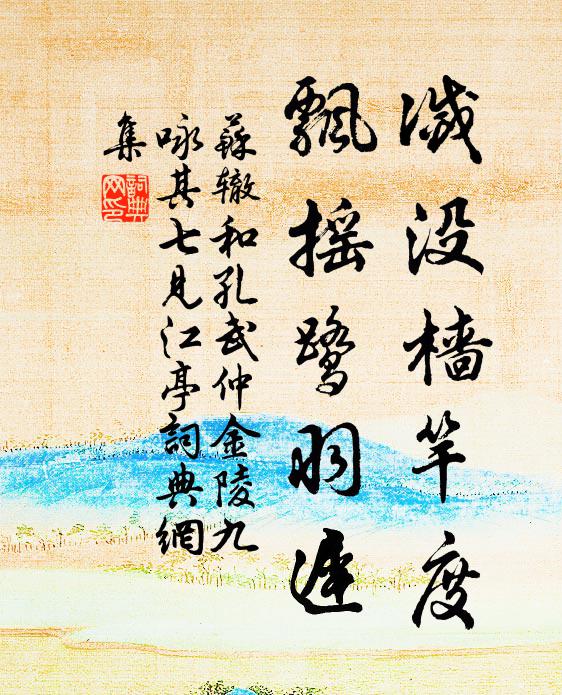 滅没檣竿度
飄摇鷺羽遲
蘇辙和孔武仲金陵九
咏其七見江亭詞典網
集
詞典网印